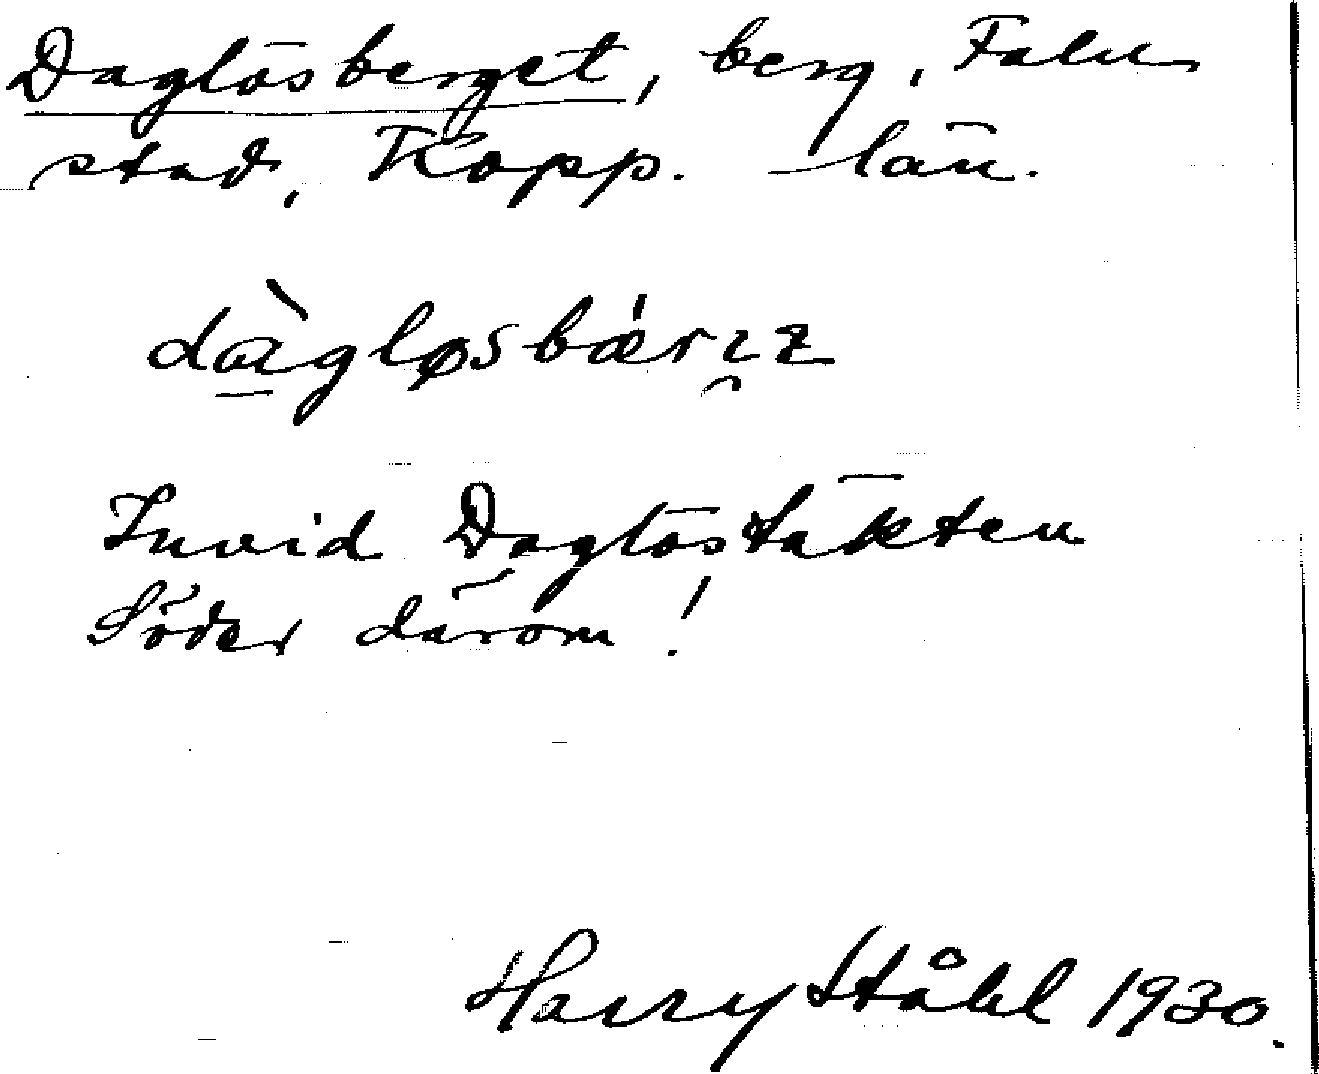 Daglösberget, berg, Falu
stad, Kopp. län.
Invid Daglöstäkten
Söder därom!
Harry Ståhl 1930.